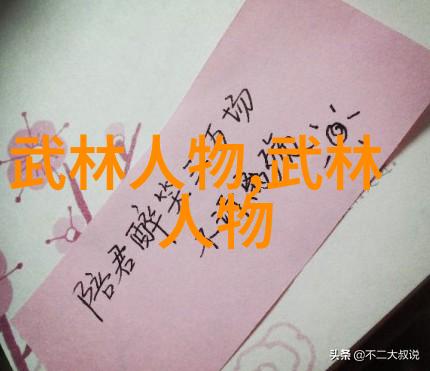 武林人物,武林
人物
陪君醉笑三万场
不
头条 @不二大叔说